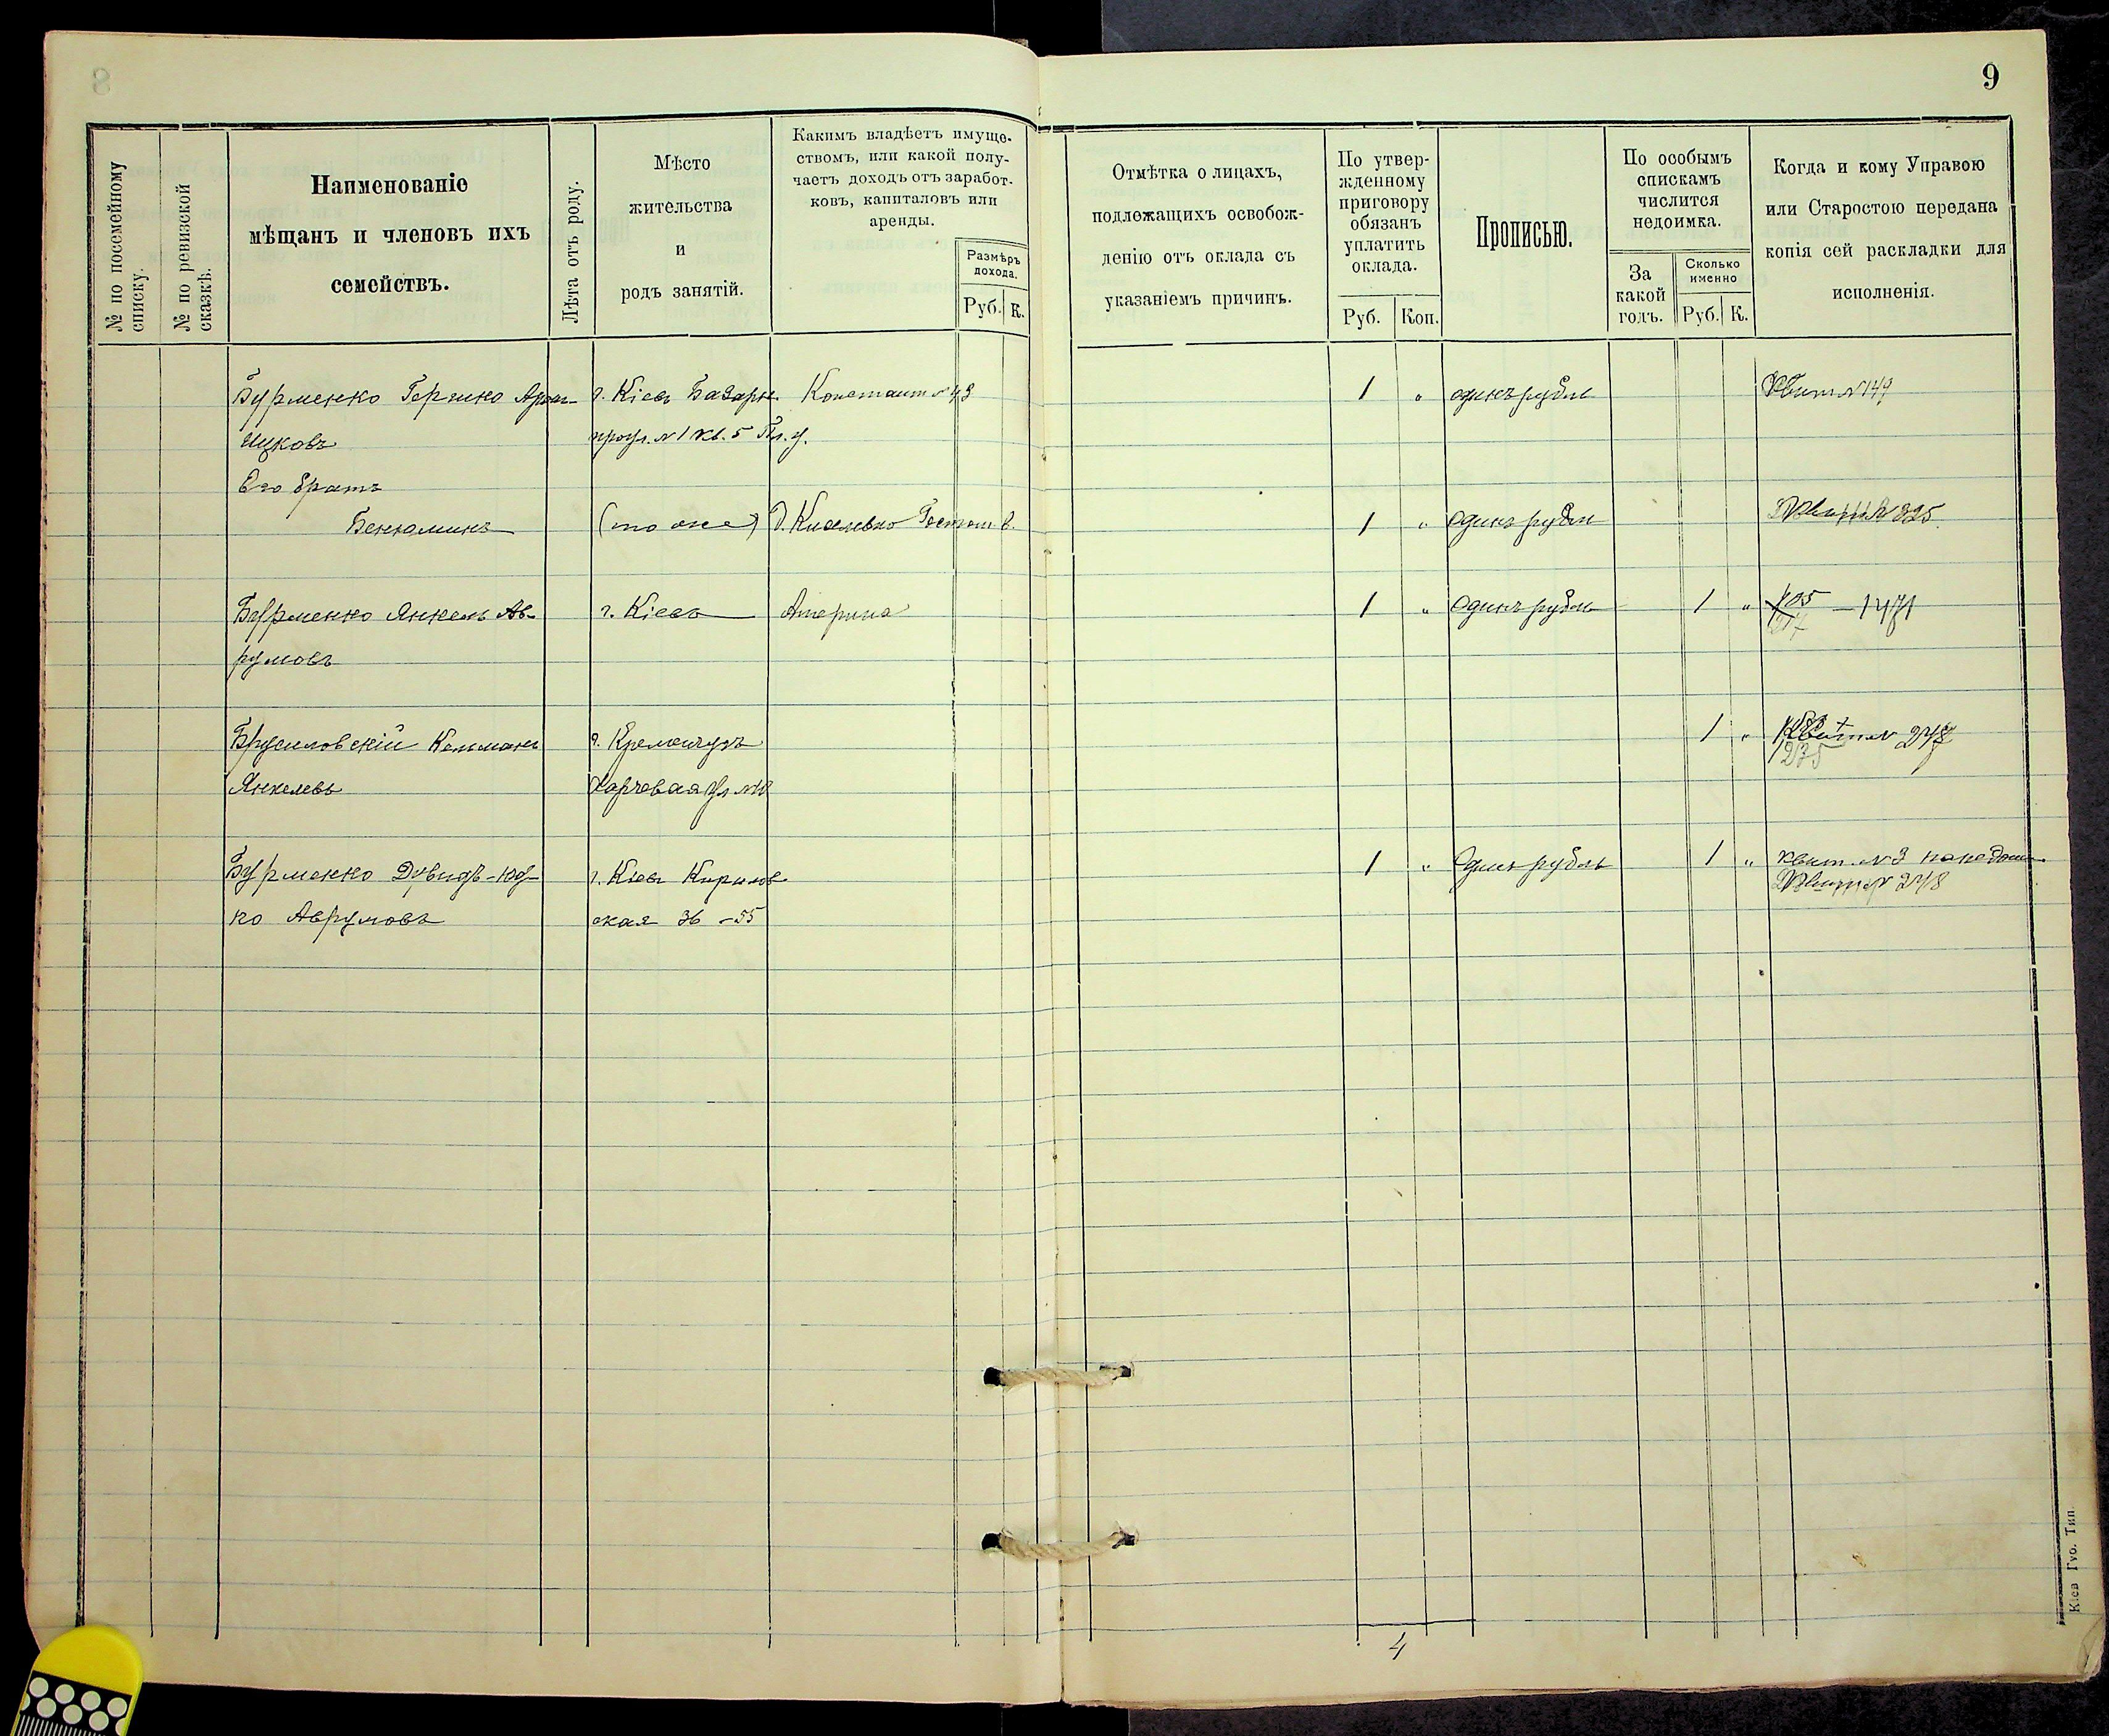 9
№ по посемейному списку.
№ по ревизской сказкѣ.
Наименованіе
мѣщанъ и членовъ ихъ
семействъ.
Лѣта отъ роду.
Мѣсто
жительства
и
родъ занятій.
Какимъ владѣетъ имуще-
ствомъ, или какой полу-
чаетъ доходъ отъ заработ-
ковъ, капиталовъ или
аренды.
Размѣръ
дохода.
Руб. К.
Отмѣтка о лицахъ,
подлежащихъ освобож-
денію отъ оклада съ
указаніемъ причинъ.
По утвер-
жденному
приговору
обязанъ
уплатить
оклада.
Руб. Коп.
Прописью.
По особымъ
спискамъ
числится
недоимка.
За
какой
годъ.
Сколько
именно
Руб. К.
Когда и кому Управою
или Старостою передана
копія сей раскладки для
исполненія.
Бурменко Гершко Арон- г. Кіевъ Базарн. Константин 43 1 " одинъ рубль Квит № 149
Ицковъ №1 кв. 5
Его братъ
Бенюминъ (то же) 1 " Одинъ рубль Квит № 325.
Бурменко Янкель Ав- г. Кіевъ 1 " Одинъ рубль 1 " 1471
румовъ
Брусиловскій Кельманъ г. Кременчугъ 1 " Квит №
1235
Янкелевъ Харчевая ул №
Бурменко Дувидъ-Юд- г. Кіевъ Кирилов- 1 " Одинъ рубль 1 " квит. № 3
Квит № 248
ко Аврумовъ ская 36 - 55
4
Кіев Губ. Тип.